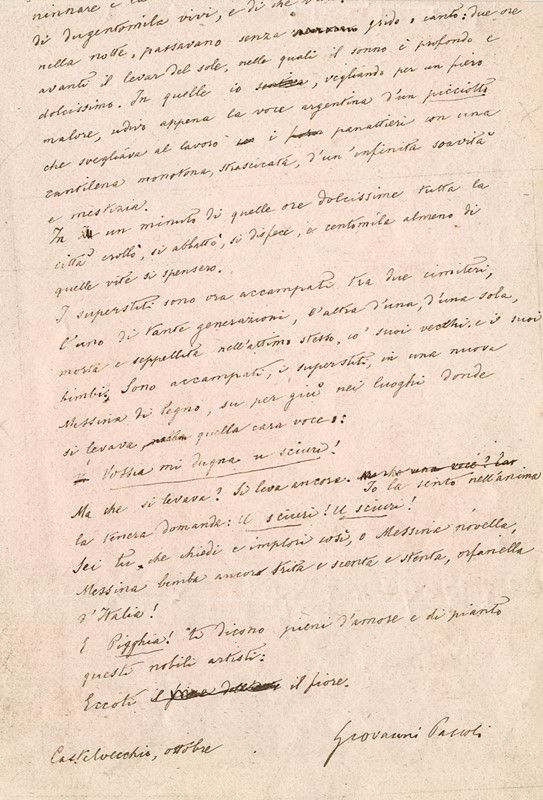 ninnare e la
di dugentomila vivi, e di che
nella notte, passavano senza grido o canto: due ore
avanti il levar del sole, nelle quali il sonno è profondo e
dolcissimo. In quelle io sentiva, vegliando per un fiero
malore, udivo appena la voce argentina d'un picciotto
che svegliava al lavoro i panattieri con una
cantilena monotona, strascicata, d'un'infinita soavità
e mestizia.
In un minuto di quelle ore dolcissime tutta la
città crollò, si abbattò, si disfece, e centomila almeno di
quelle vite si spensero.
I superstiti sono ora accampati tra due cimiteri,
l'uno di tante generazioni, l'altro d'una, d'una sola,
morta e seppellita nell'attimo stesso, co' suoi vecchi e i suoi
bimbi. Sono accampati, i superstiti, in una nuova
Messina di legno, su per giù nei luoghi donde
si levava, nella quella cara voce:
Vossia mi dugna u sciuri!
Ma che si levava? Si leva ancora. Ma che una voce? Io la sento nell'anima
la tenera domanda: U sciuri! U sciuri!
Sei tu, che chiedi e implori così, o Messina novella,
Messina bimba ancora trita e scenta e stenta, orfanella
d'Italia!
E Pigghia! ti dicono pieni d'amore e di pianto
questi nobili artisti:
Eccoti il fiore.
Castelvecchio, ottobre
Giovanni Pascoli